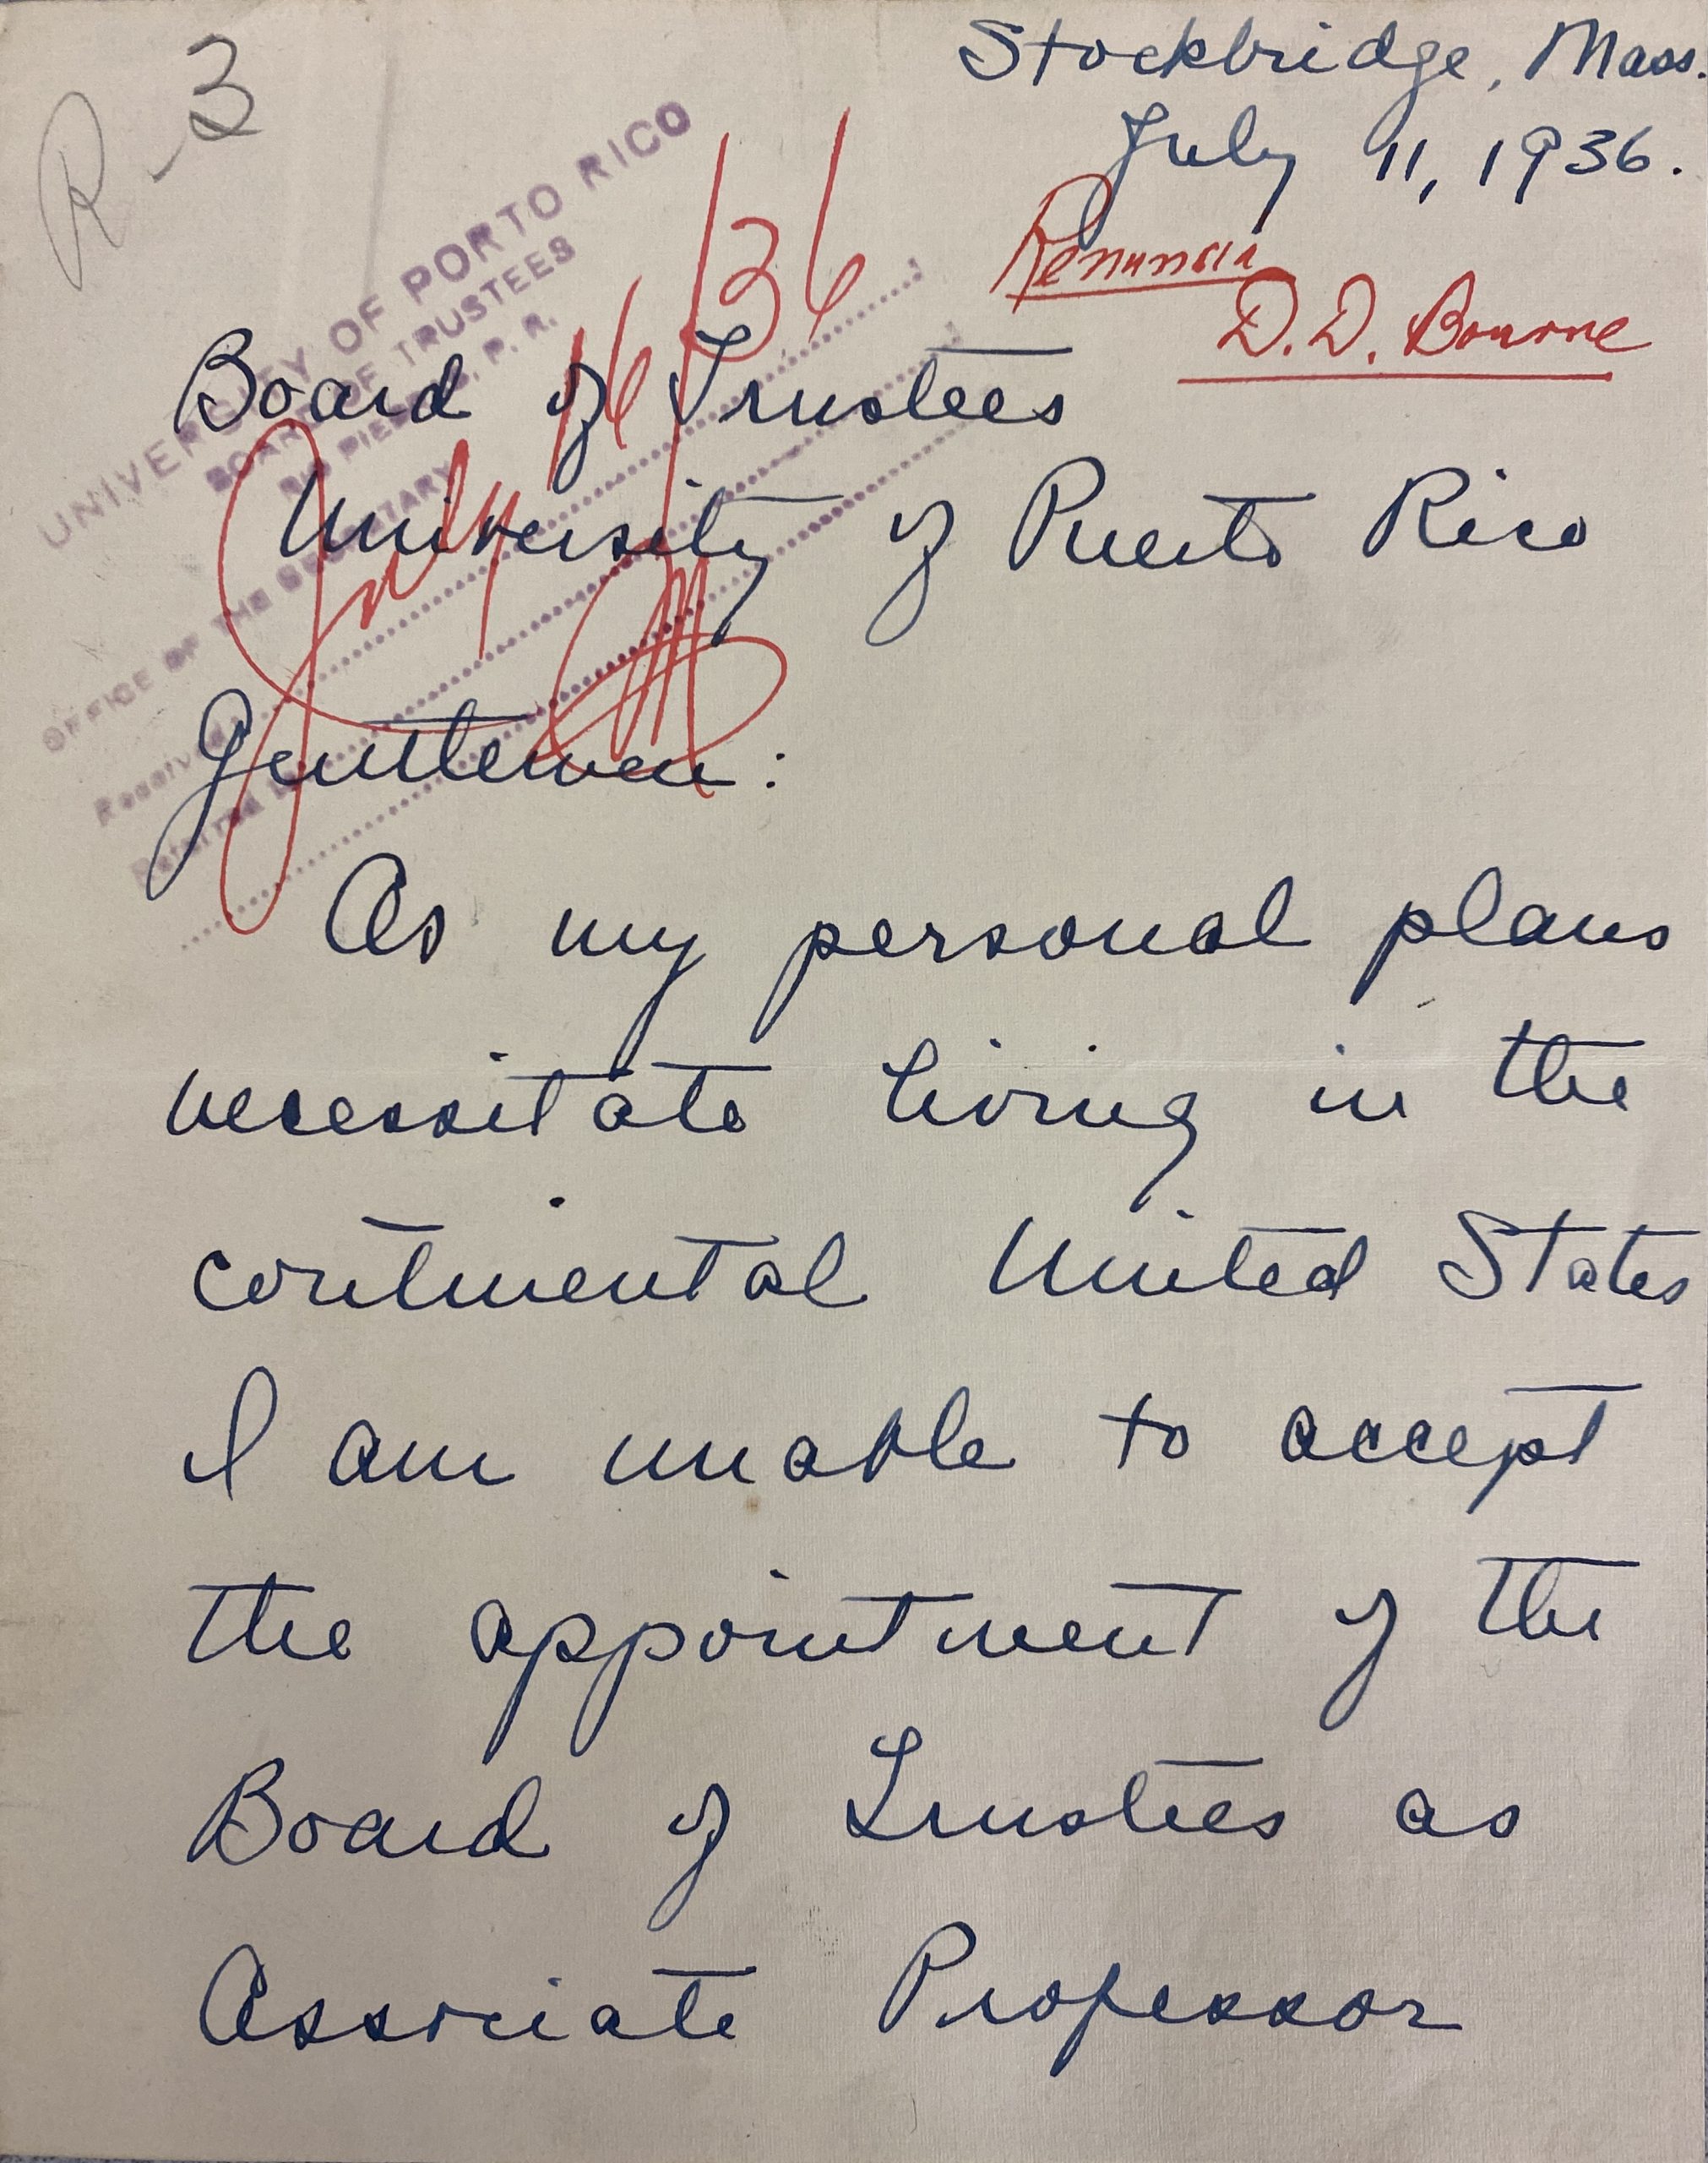 R-3
Stockbridge, Mass.
July 11, 1936.
Renuncia
D.D. Bourne
UNIVERSITY OF PORTO RICO
BOARD OF TRUSTEES
RIO PIEDRAS, P. R.
OFFICE OF THE SECRETARY
Received
Referred
July 16/36
Board of Trustees
University of Puerto Rico
Gentlemen:
As my personal plans
necessitate living in the
continental United States
I am unable to accept
the appointment of the
Board of Trustees as
Associate Professor